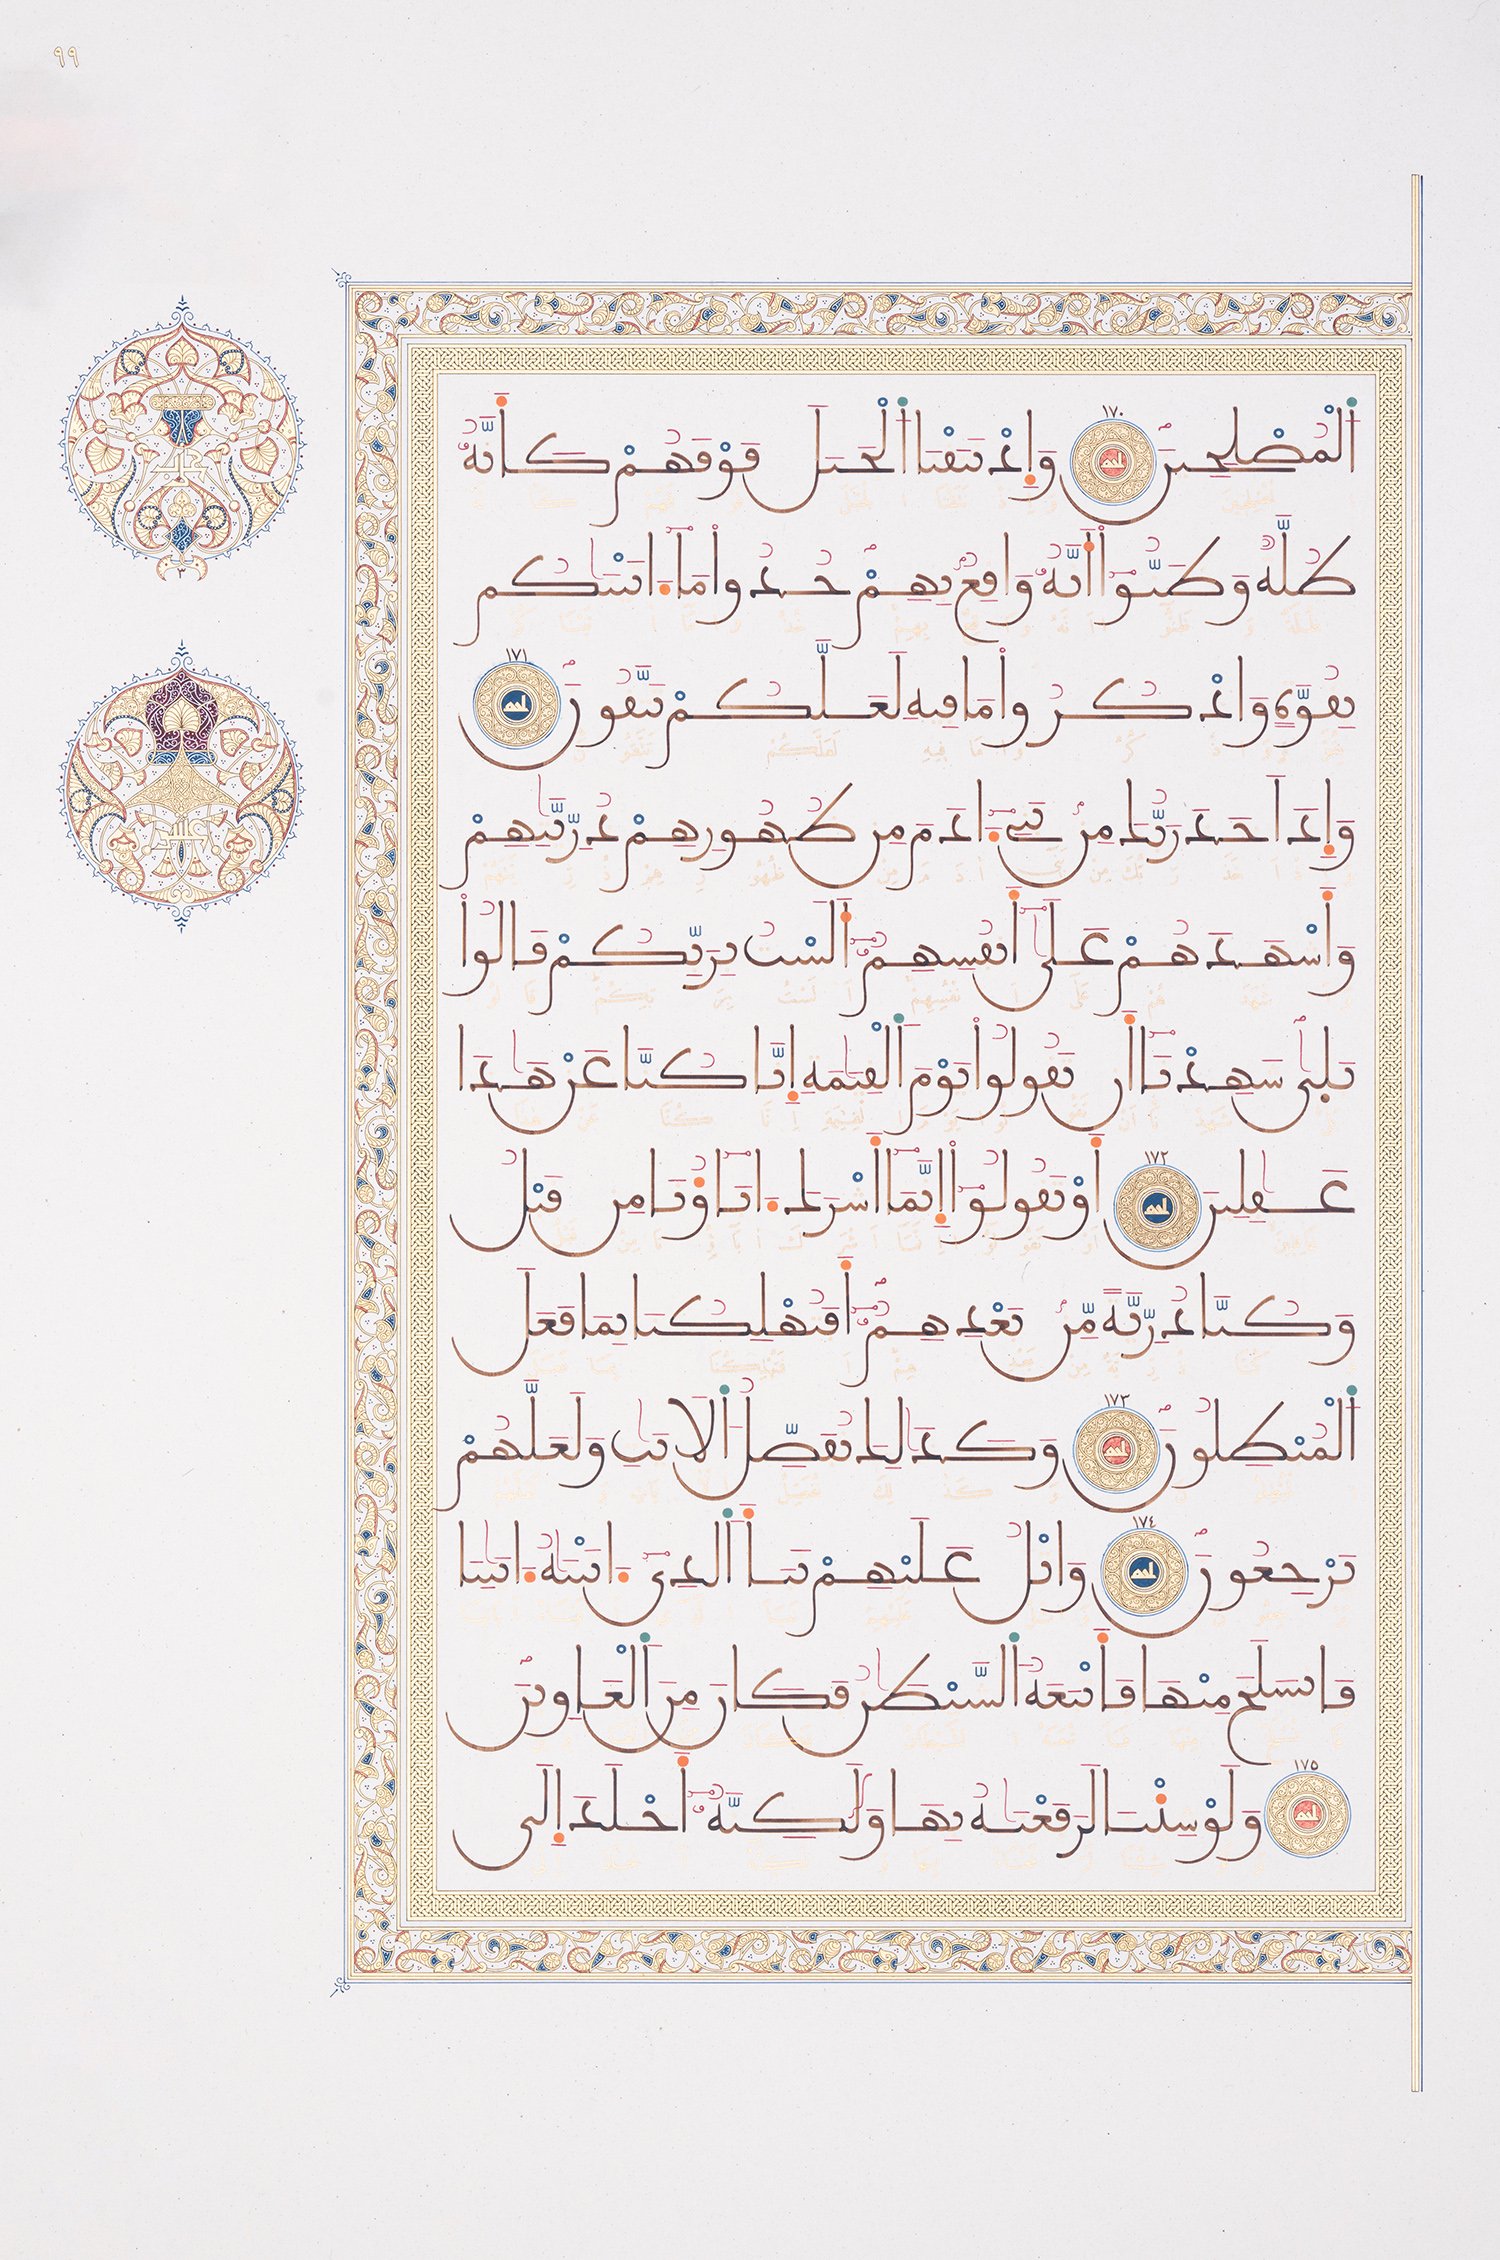 ٩٩
اَ۬لْمُصْلِحِينَ ١٧٠ وَإِذْ نَتَقْنَا اَ۬لْجَبَلَ فَوْقَهُمْ كَأَنَّهُۥ
ظُلَّةٌ وَظَنُّوٓاْ أَنَّهُۥ وَاقِعٌۢ بِهِمْ خُذُواْ مَآ ءَاتَيْنَٰكُم
بِقُوَّةٍ وَاذْكُرُواْ مَا فِيهِ لَعَلَّكُمْ تَتَّقُونَ ١٧١
وَإِذْ أَخَذَ رَبُّكَ مِنۢ بَنِےٓ ءَادَمَ مِن ظُهُورِهِمْ ذُرِّيَّٰتِهِمْ
وَأَشْهَدَهُمْ عَلَىٰٓ أَنفُسِهِمُۥٓ أَلَسْتُ بِرَبِّكُمْ قَالُواْ
بَلَىٰ شَهِدْنَآ أَن تَقُولُواْ يَوْمَ اَ۬لْقِيَٰمَةِ إِنَّا كُنَّا عَنْ هَٰذَا
غَٰفِلِينَ ١٧٢ أَوْ تَقُولُوٓاْ إِنَّمَآ أَشْرَكَ ءَابَآؤُنَا مِن قَبْلُ
وَكُنَّا ذُرِّيَّةً مِّنۢ بَعْدِهِمُۥٓ أَفَتُهْلِكُنَا بِمَا فَعَلَ
اَ۬لْمُبْطِلُونَ ١٧٣ وَكَذَٰلِكَ نُفَصِّلُ اُ۬لْأَيَٰتِ وَلَعَلَّهُمْ
يَرْجِعُونَ ١٧٤ وَاتْلُ عَلَيْهِمْ نَبَأَ اَ۬لذِےٓ ءَاتَيْنَٰهُ ءَايَٰتِنَا
فَانسَلَخَ مِنْهَا فَأَتْبَعَهُ اُ۬لشَّيْطَٰنُ فَكَانَ مِنَ اَ۬لْغَاوِينَ
١٧٥ وَلَوْ شِئْنَا لَرَفَعْنَٰهُ بِهَا وَلَٰكِنَّهُۥٓ أَخْلَدَ إِلَى